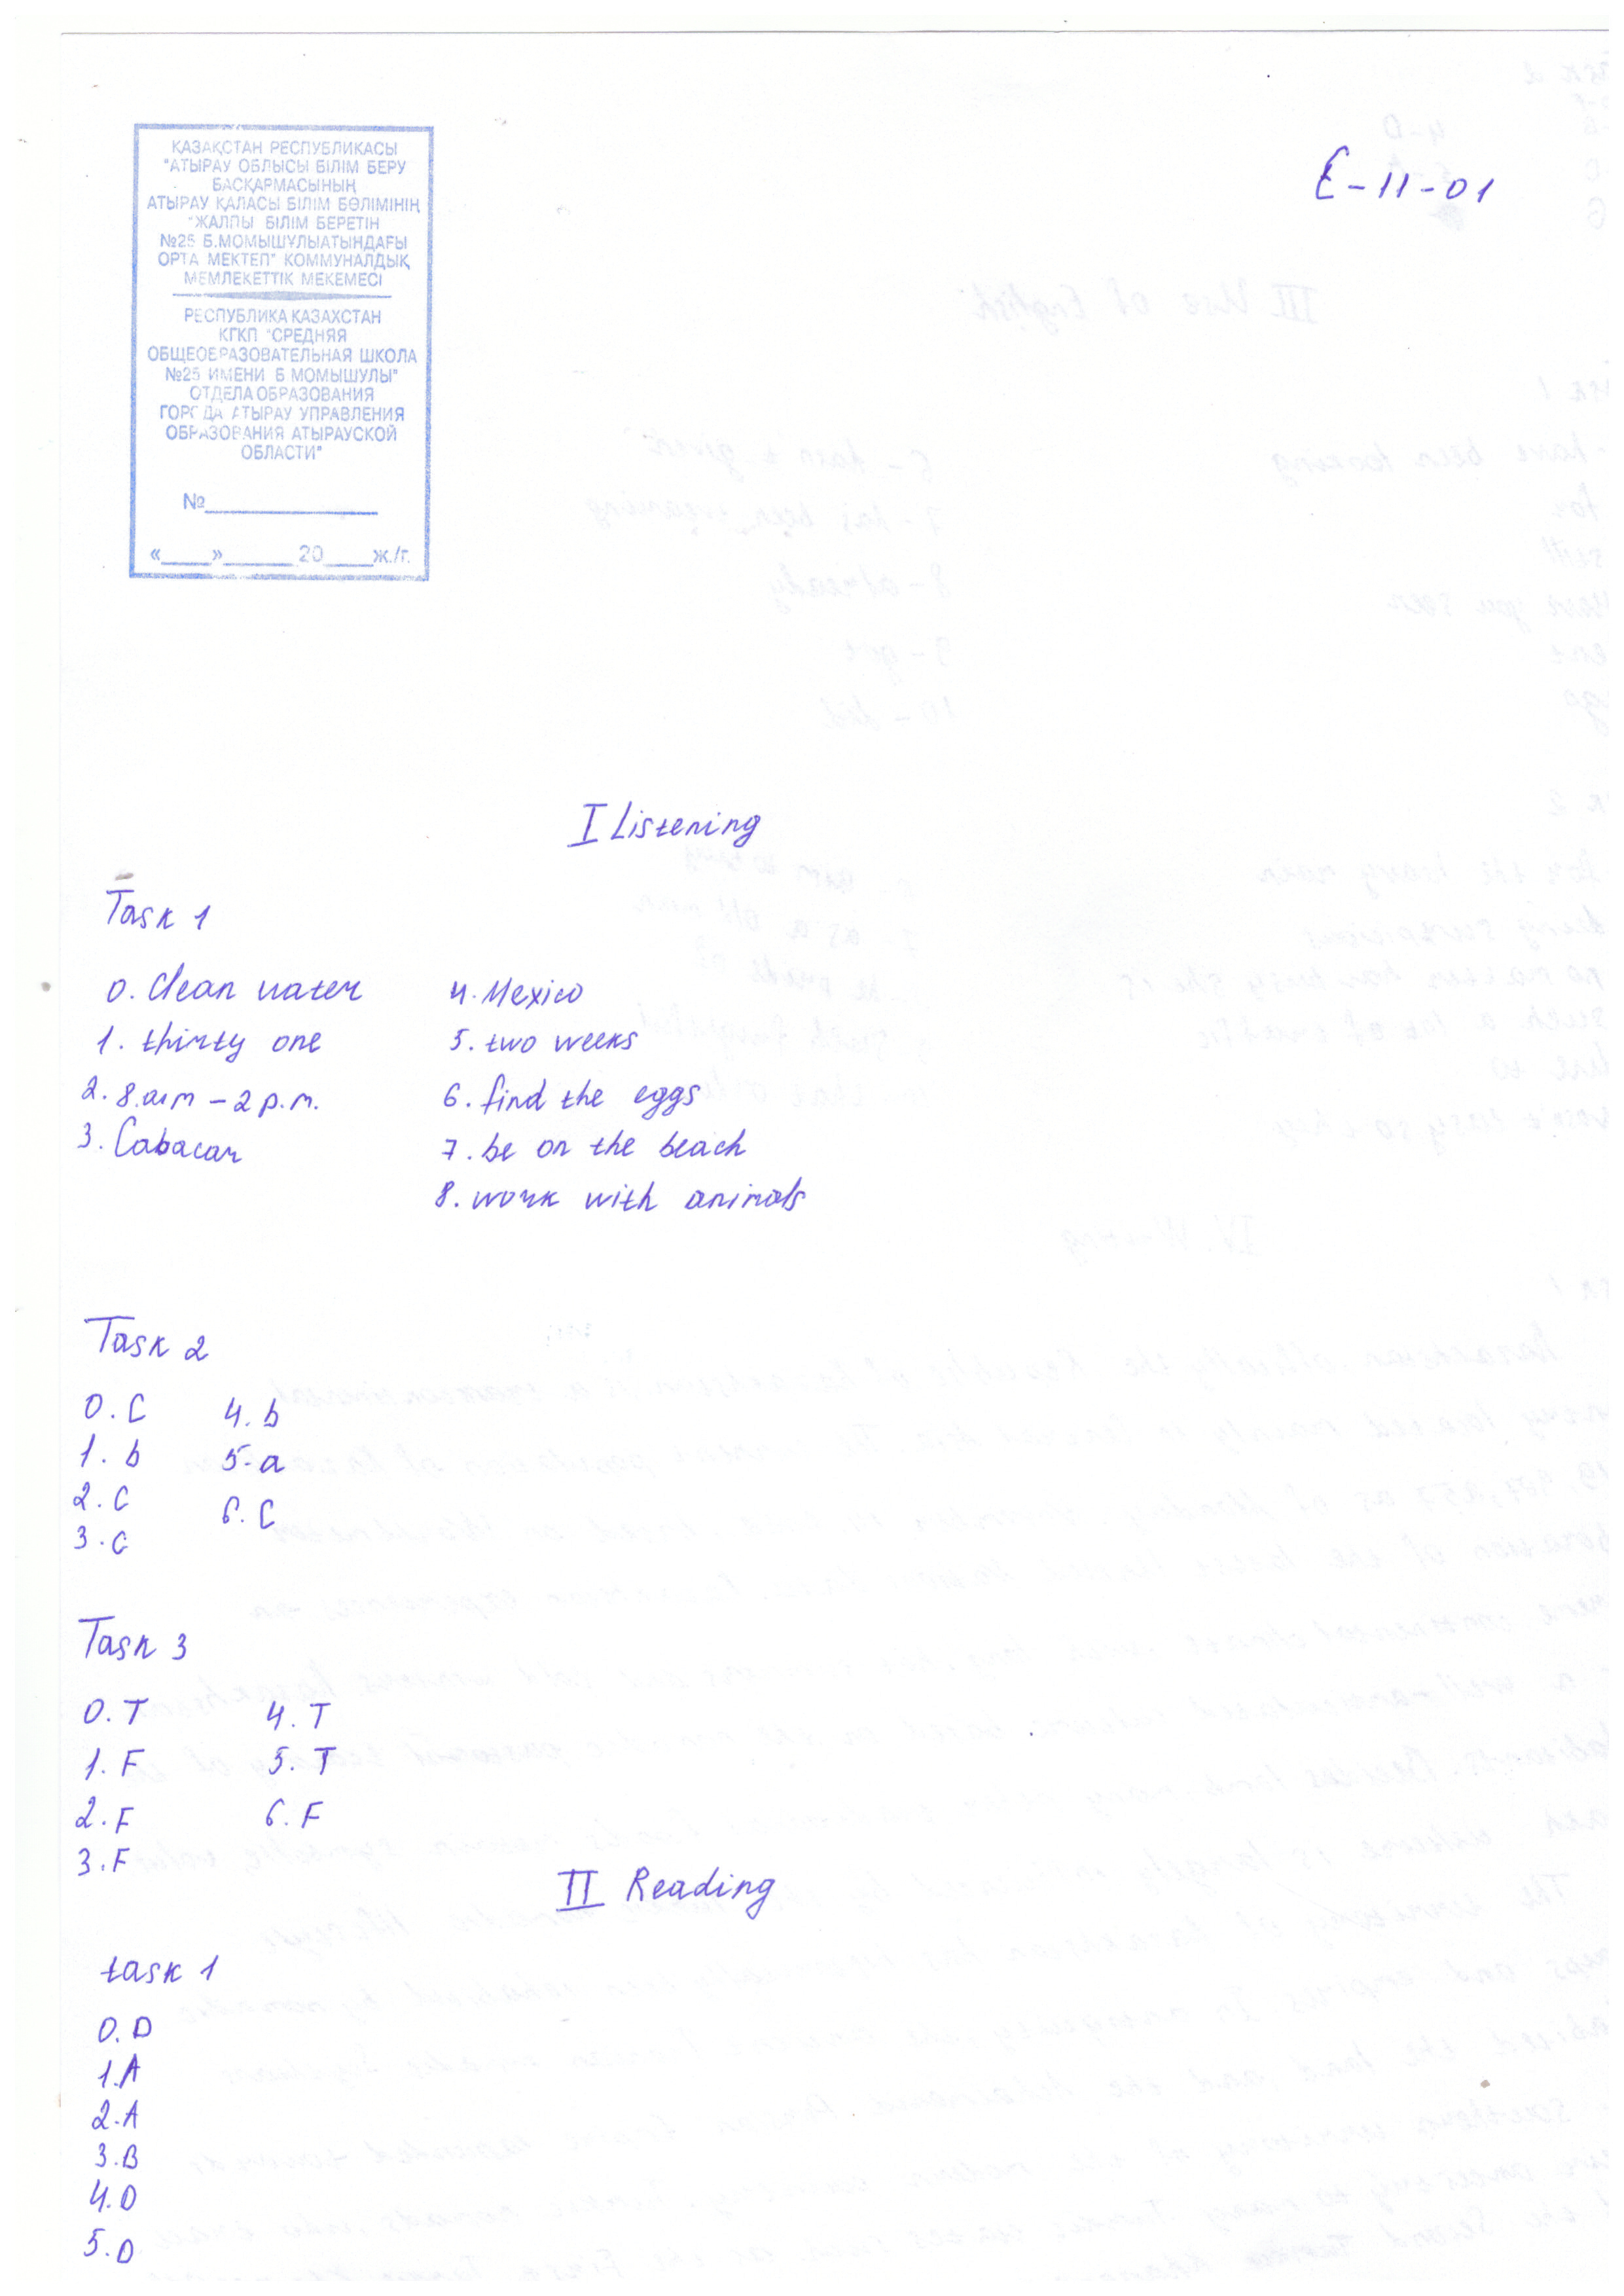 ҚАЗАҚСТАН РЕСПУБЛИКАСЫ
"АТЫРАУ ОБЛЫСЫ БІЛІМ БЕРУ
БАСҚАРМАСЫНЫҢ
АТЫРАУ ҚАЛАСЫ БІЛІМ БӨЛІМІНІҢ
"ЖАЛПЫ БІЛІМ БЕРЕТІН
№25 Б.МОМЫШҰЛЫАТЫНДАҒЫ
ОРТА МЕКТЕП" КОММУНАЛДЫҚ
МЕМЛЕКЕТТІК МЕКЕМЕСІ
РЕСПУБЛИКА КАЗАХСТАН
КГКП "СРЕДНЯЯ
ОБЩЕОБРАЗОВАТЕЛЬНАЯ ШКОЛА
№25 ИМЕНИ Б МОМЫШУЛЫ"
ОТДЕЛА ОБРАЗОВАНИЯ
ГОРОДА АТЫРАУ УПРАВЛЕНИЯ
ОБРАЗОВАНИЯ АТЫРАУСКОЙ
ОБЛАСТИ"
№
« » 20 ж./г.
E-11-01
I Listening
Task 1
0. Clean water
1. thirty one
2. 8.am - 2 p.m.
3. Cabacar
4. Mexico
5. two weeks
6. find the eggs
7. be on the beach
8. work with animals
Task 2
0. C
1. b
2. C
3. C
4. b
5. a
6. C
Task 3
0. T
1. F
2. F
3. F
4. T
5. T
6. F
II Reading
task 1
0. D
1. A
2. A
3. B
4. D
5. D